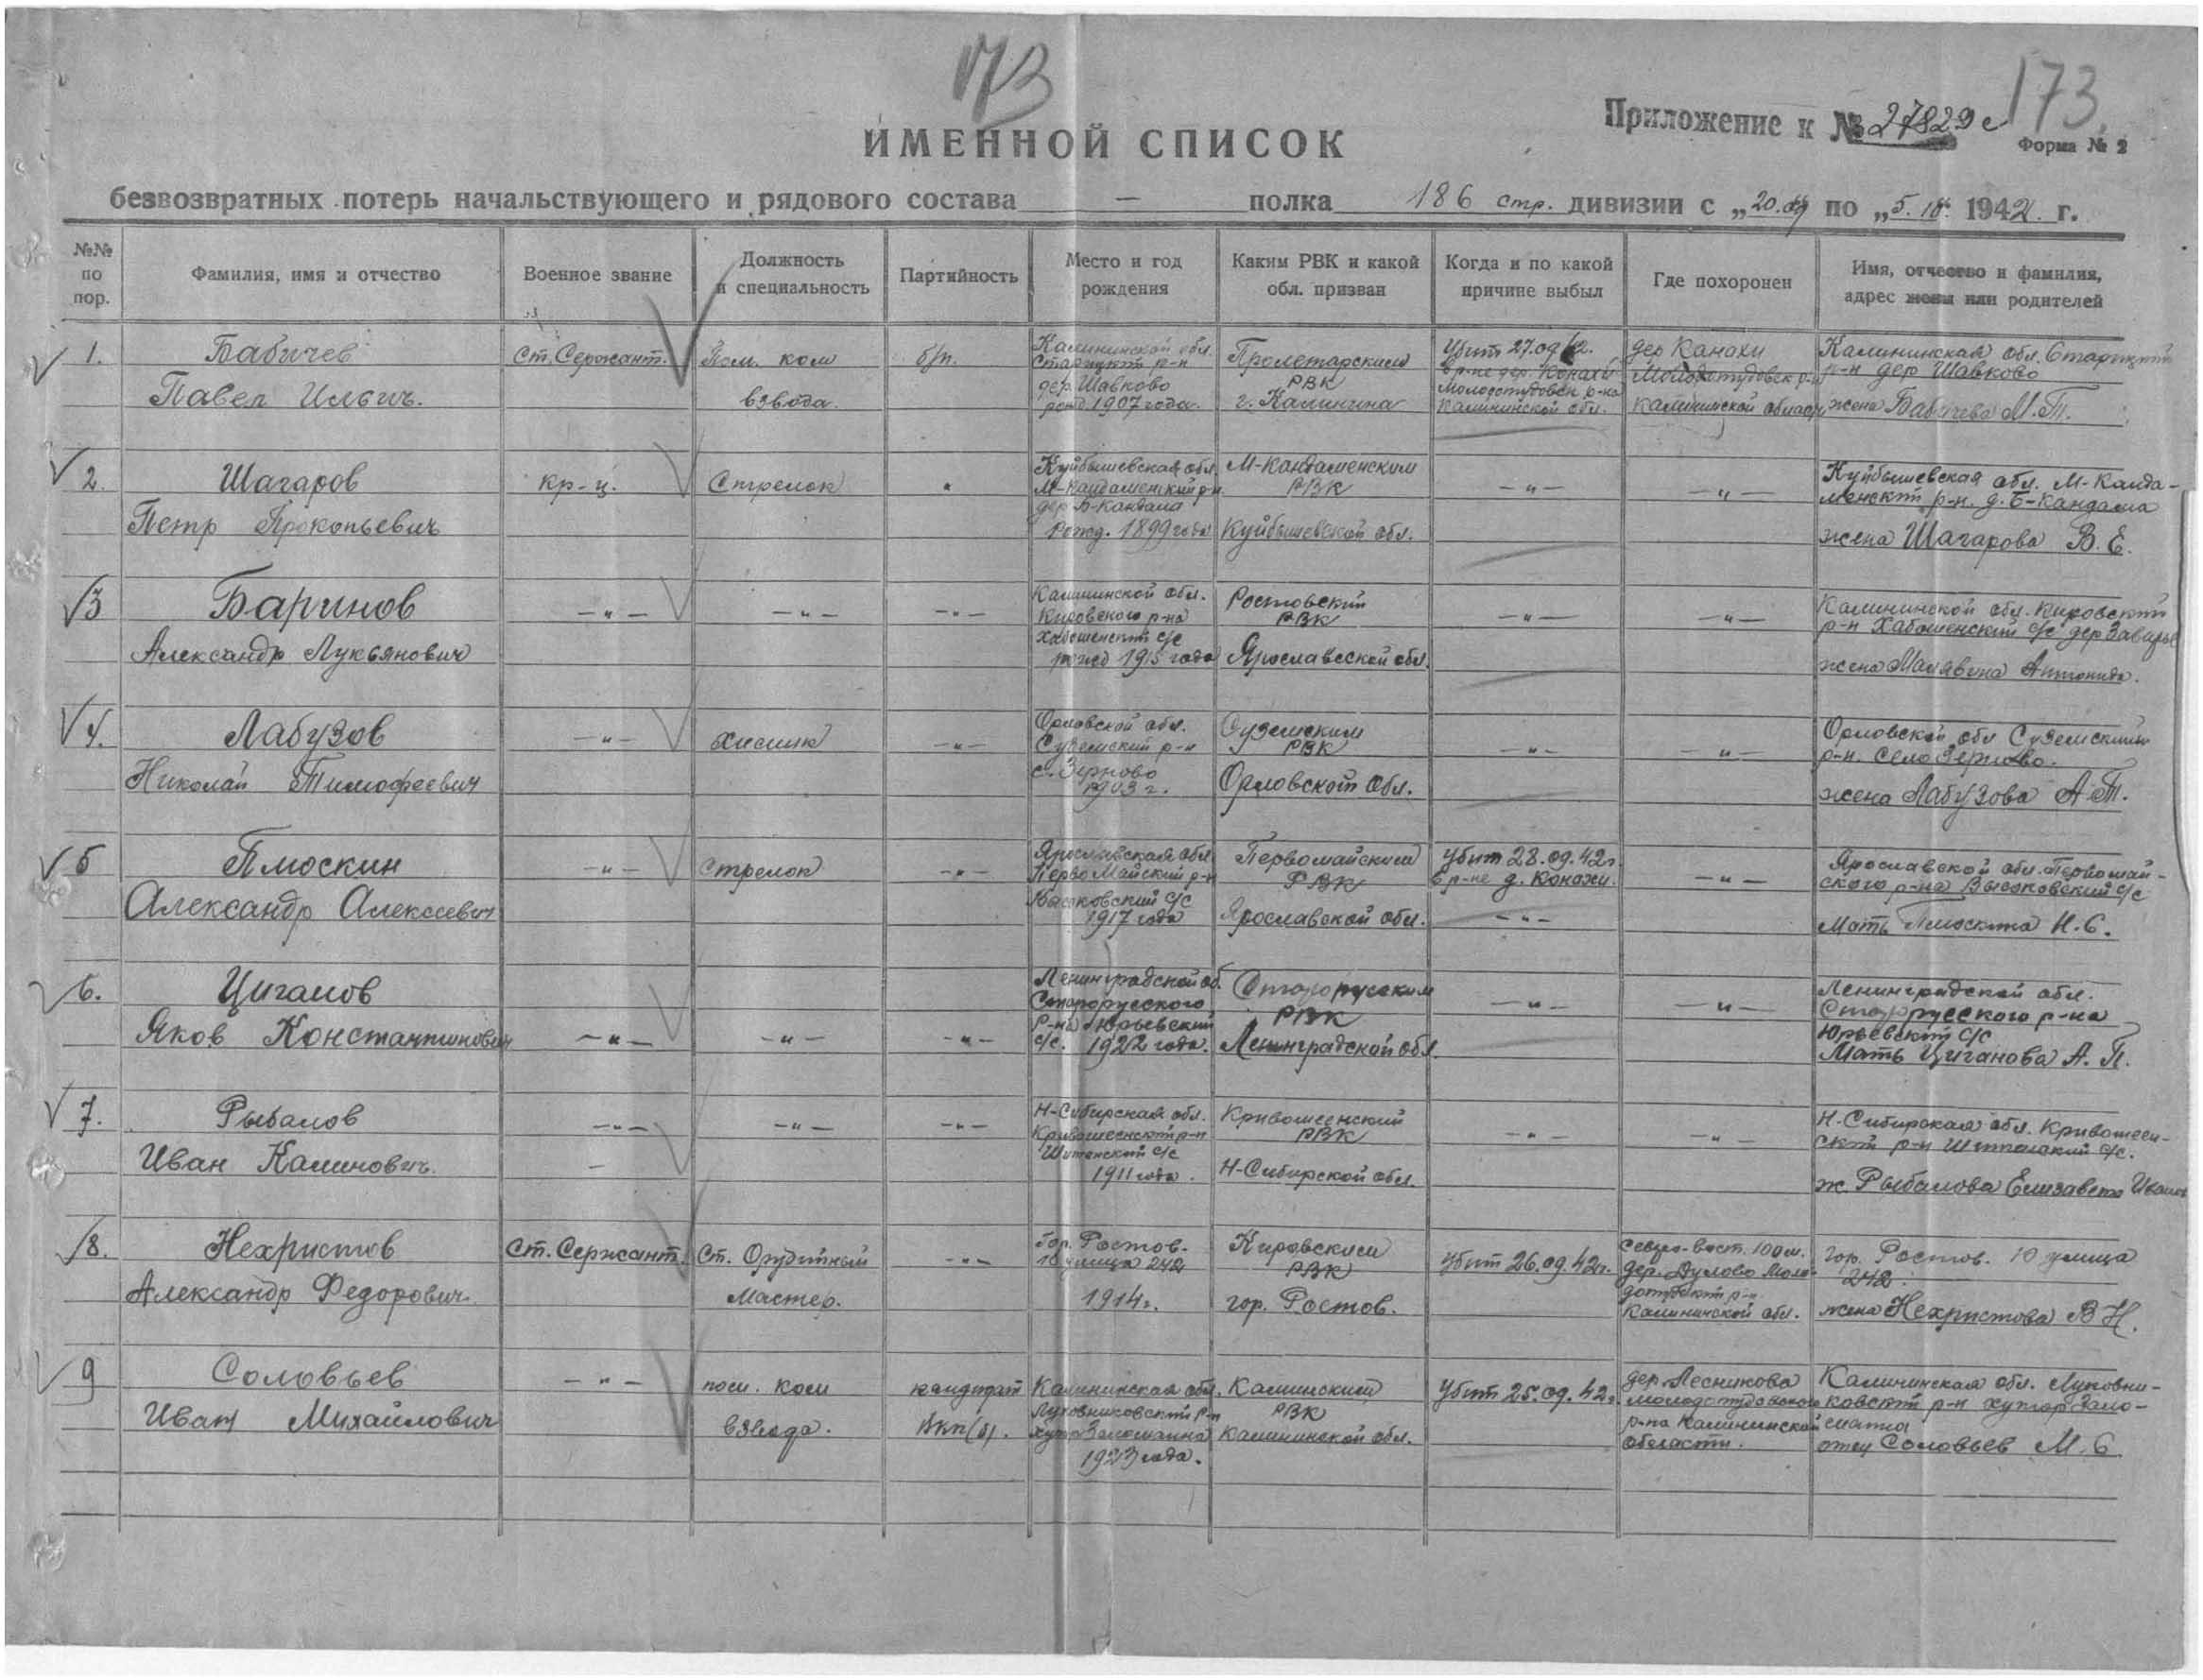 173
173
Приложение к № 27829с
Форма № 2
ИМЕННОЙ СПИСОК
безвозвратных потерь начальствующего и рядового состава — полка 186 стр. дивизии с „20.09 по „5. 1942 г.
№№ по пор.
Фамилия, имя и отчество
Военное звание
Должность и специальность
Партийность
Место и год рождения
Каким РВК и какой обл. призван
Когда и по какой причине выбыл
Где похоронен
Имя, отчество и фамилия, адрес жены или родителей
1.
Бабичев
Павел Ильич.
Ст. Сержант.
Пом. ком
взвода.
б/п.
Калининской обл.
Старицкий р-н
дер. Шавково
рожд. 1907 года.
Пролетарским
РВК
г. Калинина
Убит 27.09.42.
в р-не дер. Конахи
Молодотудовск р-на
Калининской обл.
дер Канахи
Молодотудовск р-н
Калининской област
Калининская обл. Старицкий
р-н дер Шавково
жена Бабичева М.Т.
2.
Шагаров
Петр Прокопьевич
кр-ц.
Стрелок
"
Куйбышевская обл.
М-Кандаменский р-н.
дер Б-Кандала
рожд. 1899 года
М-Кандаменским
РВК
Куйбышевской обл.
—"—
—"—
Куйбышевская обл. М-Канда-
менский р-н. д. Б-Кандала
жена Шагарова В. Е.
3
Баринов
Александр Лукьянович
—"—
—"—
—"—
Калининской обл.
Кировского р-на
Хабоменский с/с
рожд 1915 года
Ростовский
РВК
Ярославской обл.
—"—
—"—
Калининской обл. Кировский
р-н Хабоменский с/с дер Заварье
жена Малявина Антонида.
4.
Лабузов
Николай Тимофеевич
—"—
химик
—"—
Орловской обл.
Суземский р-н
с. Зерново
1903 г.
Суземским
РВК
Орловской обл.
—"—
—"—
Орловской обл Суземский
р-н. село Зерново.
жена Лабузова А.Т.
5
Плюскин
Александр Алексеевич
—"—
Стрелок
—"—
Ярославская обл
ПервоМайский р-н
Высоковский с/с
1917 года
Первомайским
РВК
Ярославской обл.
Убит 28.09.42г.
в р-не д. Конахи.
—"—
—"—
Ярославской обл. Первомай-
ского р-на Высоковский с/с
Мать Плюскина Н. С.
6.
Циганов
Яков Константинович
—"—
—"—
—"—
Ленинградской об.
Старорусского
р-на Юрьевский
с/с. 1922 года.
Старорусским
РВК
Ленинградской обл
—"—
—"—
Ленинградской обл.
Старрусского р-на
Юрьевский с/с
Мать Циганова А. П.
7.
Рыбалов
Иван Калинович.
—"—
—
—"—
—"—
Н-Сибирская обл.
Кривошеенский р-н
с/с
1911 года.
Кривошеенский
РВК
Н-Сибирской обл.
—"—
—"—
Н-Сибирская обл. Кривошеен-
ский р-н с/с.
ж. Рыбалова Елизавета Иванов
8.
Нехристов
Александр Федорович.
Ст. Сержант.
Ст. Оружейный
Мастер.
—"—
Гор. Ростов.
10 улица 242
1914г.
Кировским
РВК
гор. Ростов.
Убит 26.09.42г.
Северо-вост. 100 м.
дер. Дулово Моло-
дотудский р-н
Калининской обл.
Гор. Ростов. 10 улица
242.
жена Нехристова В Н.
9
Соловьев
Иван Михайлович
—"—
пом. ком
взвода.
кандидат
Вкп(б).
Калининская обл.
Луковниковский р-н
хутор Заломаина
1923 года.
Калининский
РВК
Калининской обл.
Убит 25.09.42г.
дер. Лесникова
Молодотудовского
р-на Калининской
области.
Калининская обл. Луковни-
ковский р-н хутор Зало-
маина
отец Соловьев М. С.